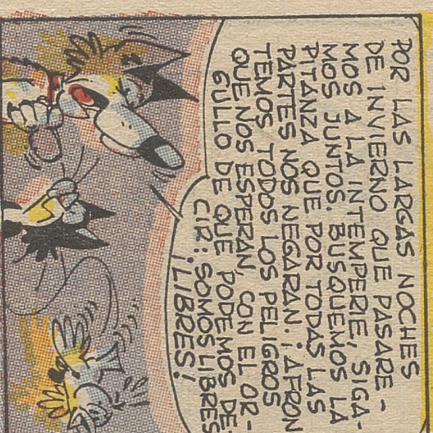 POR LAS LARGAS NOCHES
DE INVIERNO QUE PASARE-
MOS A LA INTEMPERIE, SIGA-
MOS JUNTOS. BUSQUEMOS LA
PITANZA QUE POR TODAS LAS
PARTES NOS NEGARAN. ¡AFRON
TEMOS TODOS LOS PELIGROS
QUE NOS ESPERAN, CON EL OR-
GULLO DE QUE PODEMOS DE-
CIR: SOMOS LIBRES
¡LIBRES!